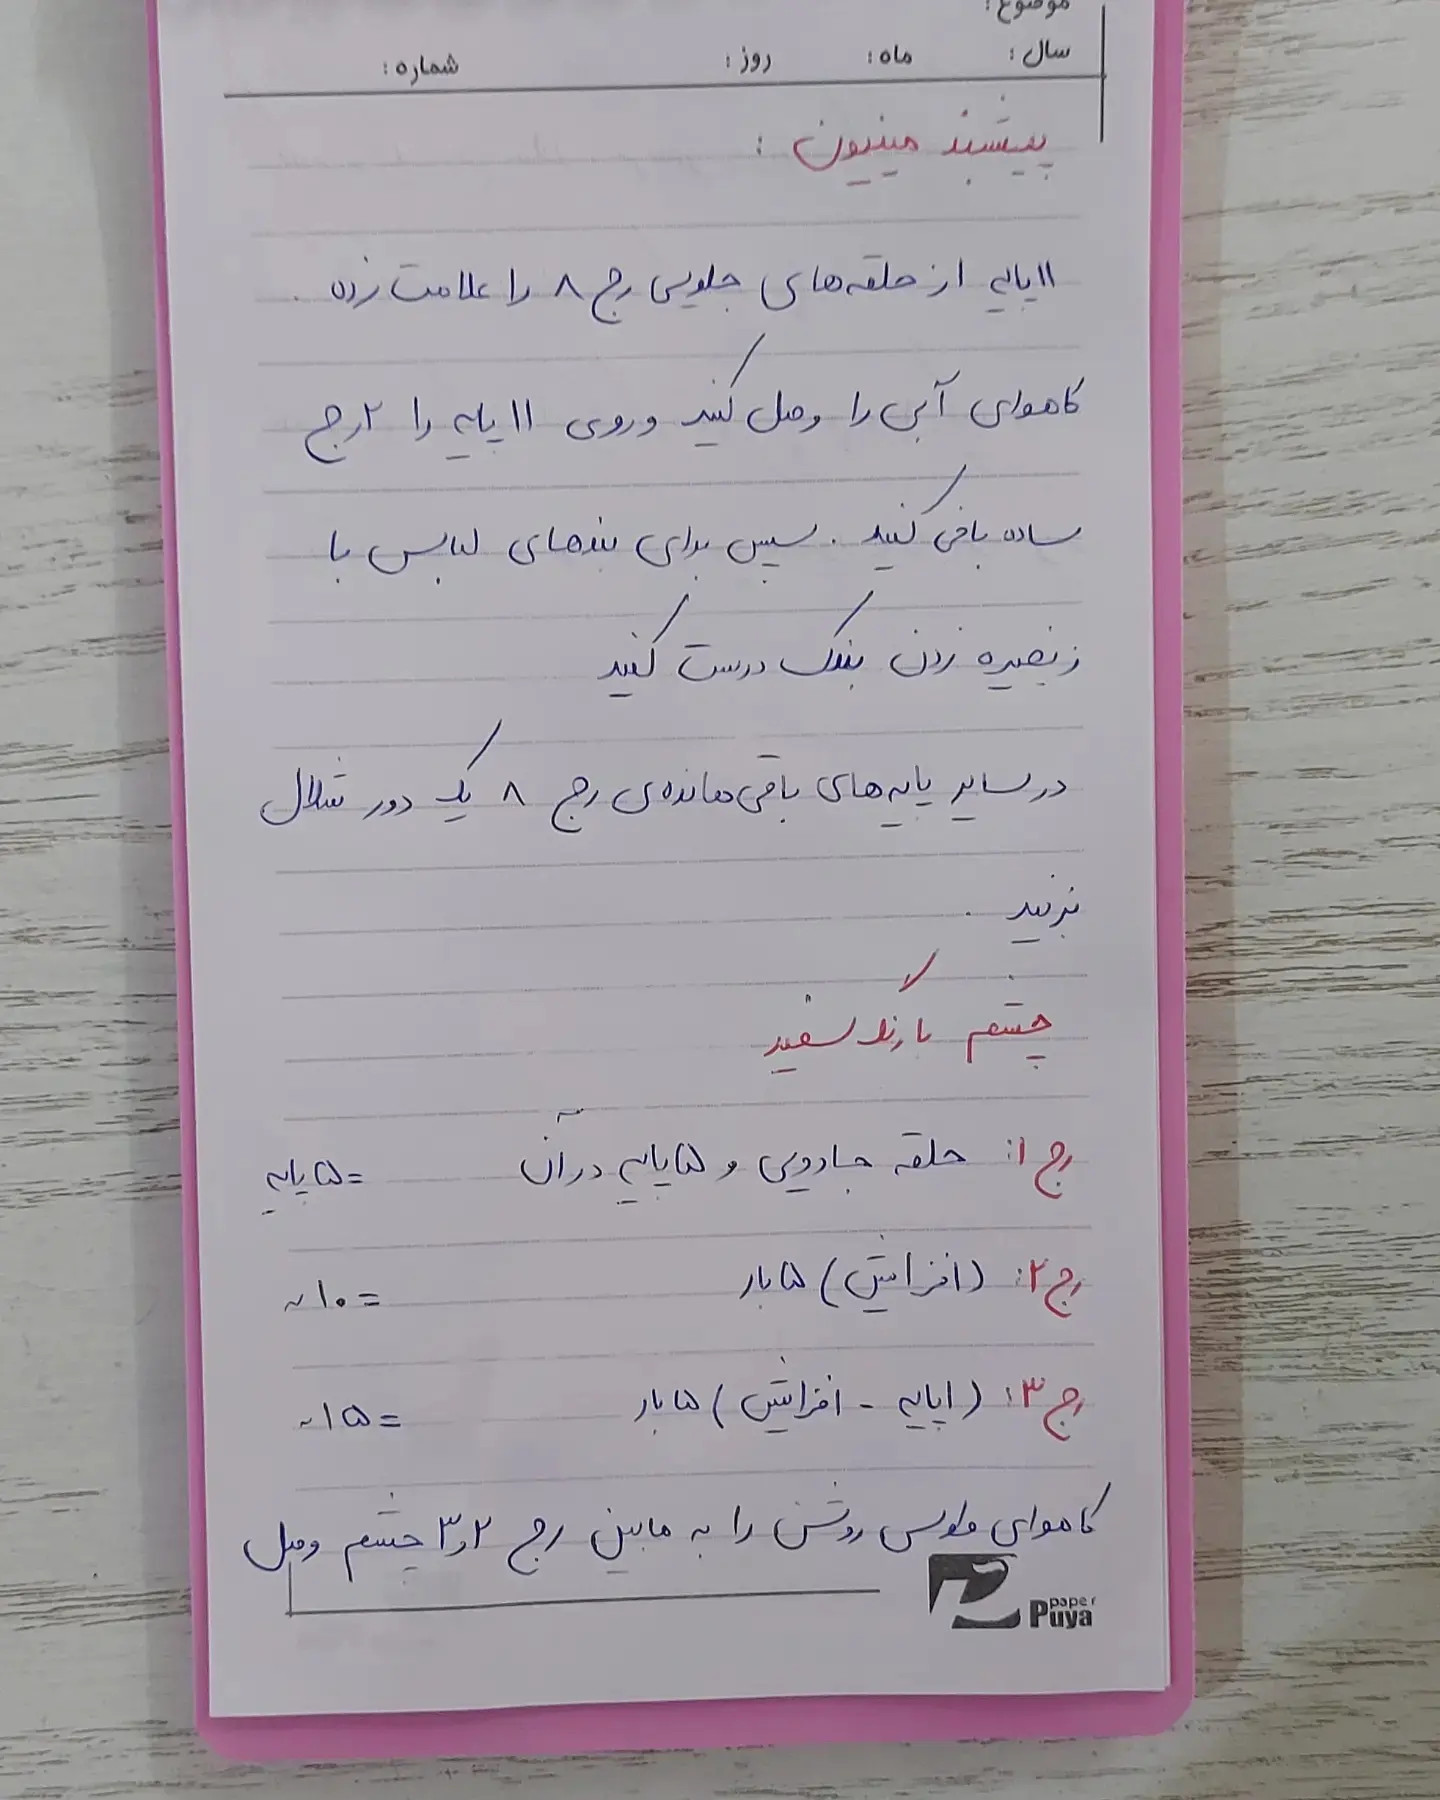 موضوع:
سال: ماه: روز: شماره:
پیشبند مینیون:
۱۱پایه از حلقه‌های جلویی رج ۸ را علامت زده.
کاموای آبی را وصل کنید و روی ۱۱ پایه را ۲رج
ساده بافی کنید. سپس برای بندهای لباس با
زنجیره زدن بندک درست کنید
در سایر پایه‌های باقی‌مانده‌ی رج ۸ یک دور شلال
بزنید.
چشم با رنگ سفید
رج ۱: حلقه جادویی و ۵پایه در آن =۵پایه
رج ۲: (افزایش) ۵بار =۱۰~
رج ۳: (۱پایه - افزایش) ۵بار =۱۵~
کاموای طوسی روشن را به مابین رج ۲و۳ چشم وصل
paper
Puya